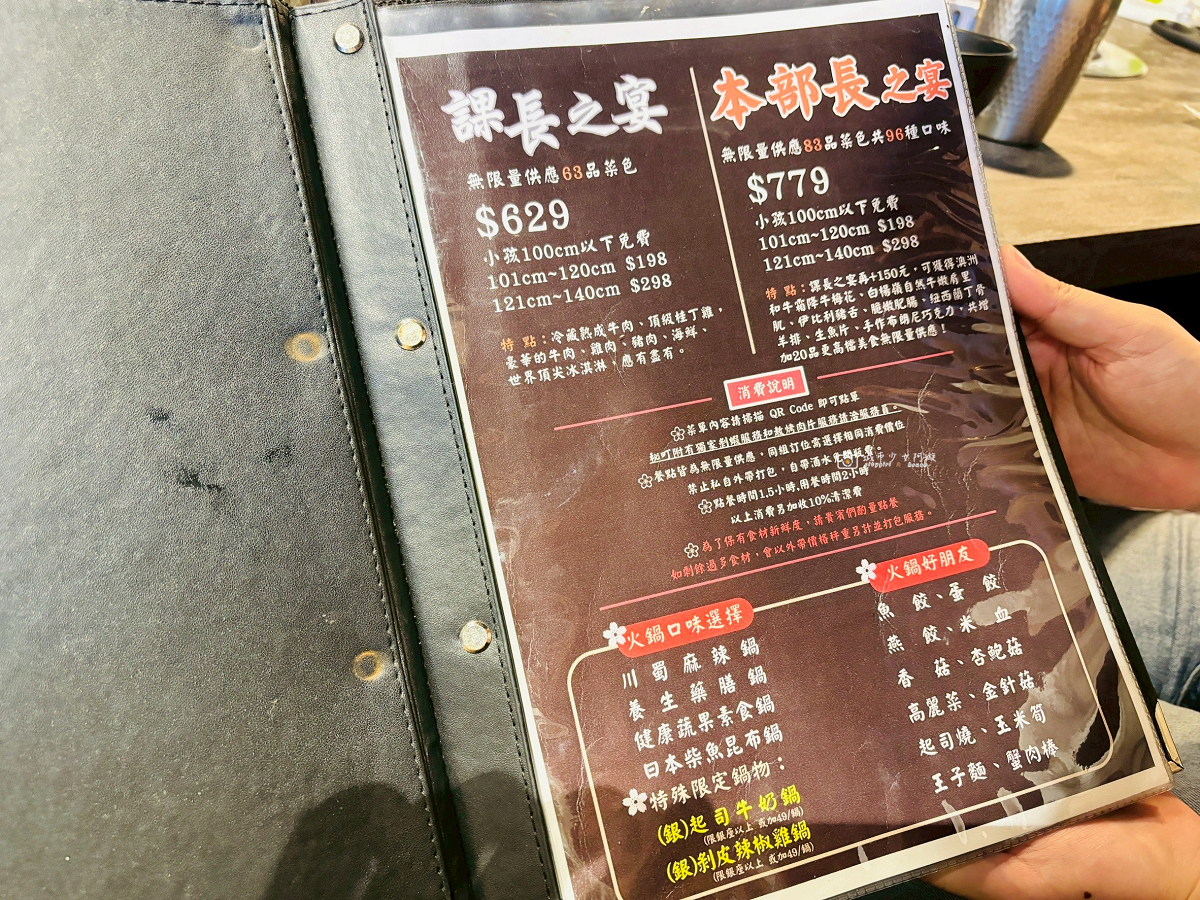 課長之宴
無限量供應63品菜色
$629
小孩100cm以下免費
101cm~120cm $198
121cm~140cm $298
特點：冷藏熟成牛肉、頂級桂丁雞，
豪華的牛肉、雞肉、豬肉、海鮮、
世界頂尖冰淇淋，應有盡有。
本部長之宴
無限量供應83品菜色共96種口味
$779
小孩100cm以下免費
101cm~120cm $198
121cm~140cm $298
特點：課長之宴再+150元，可獲得澳洲
和牛霜降牛梅花、白楊嶺自然牛嫩肩里
肌、伊比利豬舌、脆嫩肥腸、紐西蘭丁骨
羊排、生魚片、手作布朗尼巧克力，共增
加20品更高檔美食無限量供應！
消費說明
菜單內容請掃描 QR Code 即可點單
秘町附有獨家剝蝦服務和教烤肉片服務請洽服務員。
餐點皆為無限量供應、同組訂位需選擇相同消費價位
禁止私自外帶打包，自帶酒水
點餐時間1.5小時,用餐時間2小時
以上消費另加收10%清潔費
為了保有食材新鮮度，請貴賓們酌量點餐
如剩餘過多食材，會以外帶價格秤重另計並打包服務。
火鍋口味選擇
川蜀麻辣鍋
養生藥膳鍋
健康蔬果素食鍋
日本柴魚昆布鍋
特殊限定鍋物：
(銀)起司牛奶鍋
(限銀座以上 或加49/鍋)
(銀)剝皮辣椒雞鍋
(限銀座以上 或加49/鍋)
火鍋好朋友
魚餃、蛋餃
燕餃、米血
香菇、杏鮑菇
高麗菜、金針菇
起司燒、玉米筍
王子麵、蟹肉棒